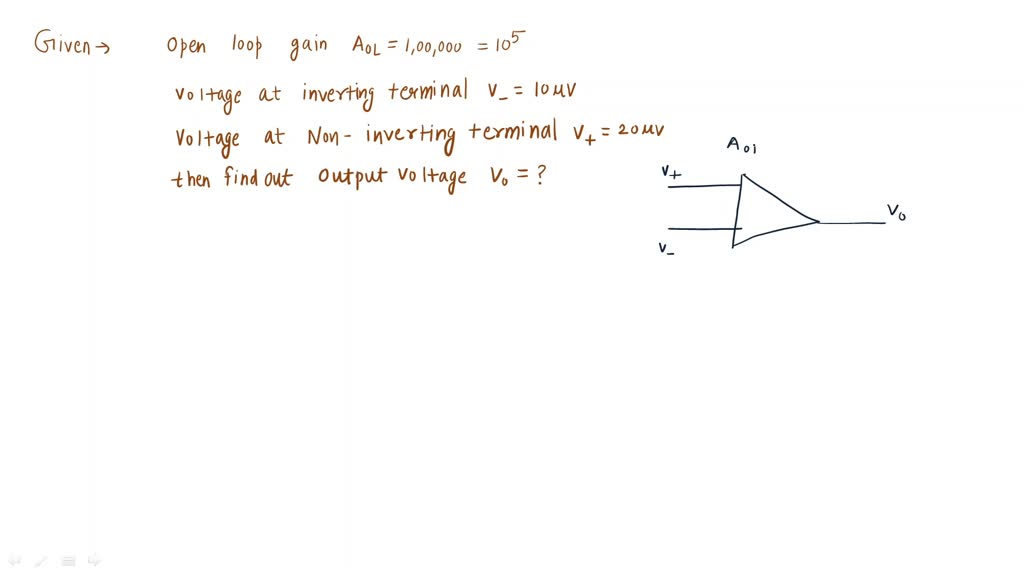 Given → Open loop gain A_OL = 1,00,000 = 10^5
Voltage at inverting terminal V_- = 10 μV
Voltage at Non-inverting terminal V_+ = 20 μV
then find out Output Voltage V_o = ?
A_ol
V_+
V_o
V_-